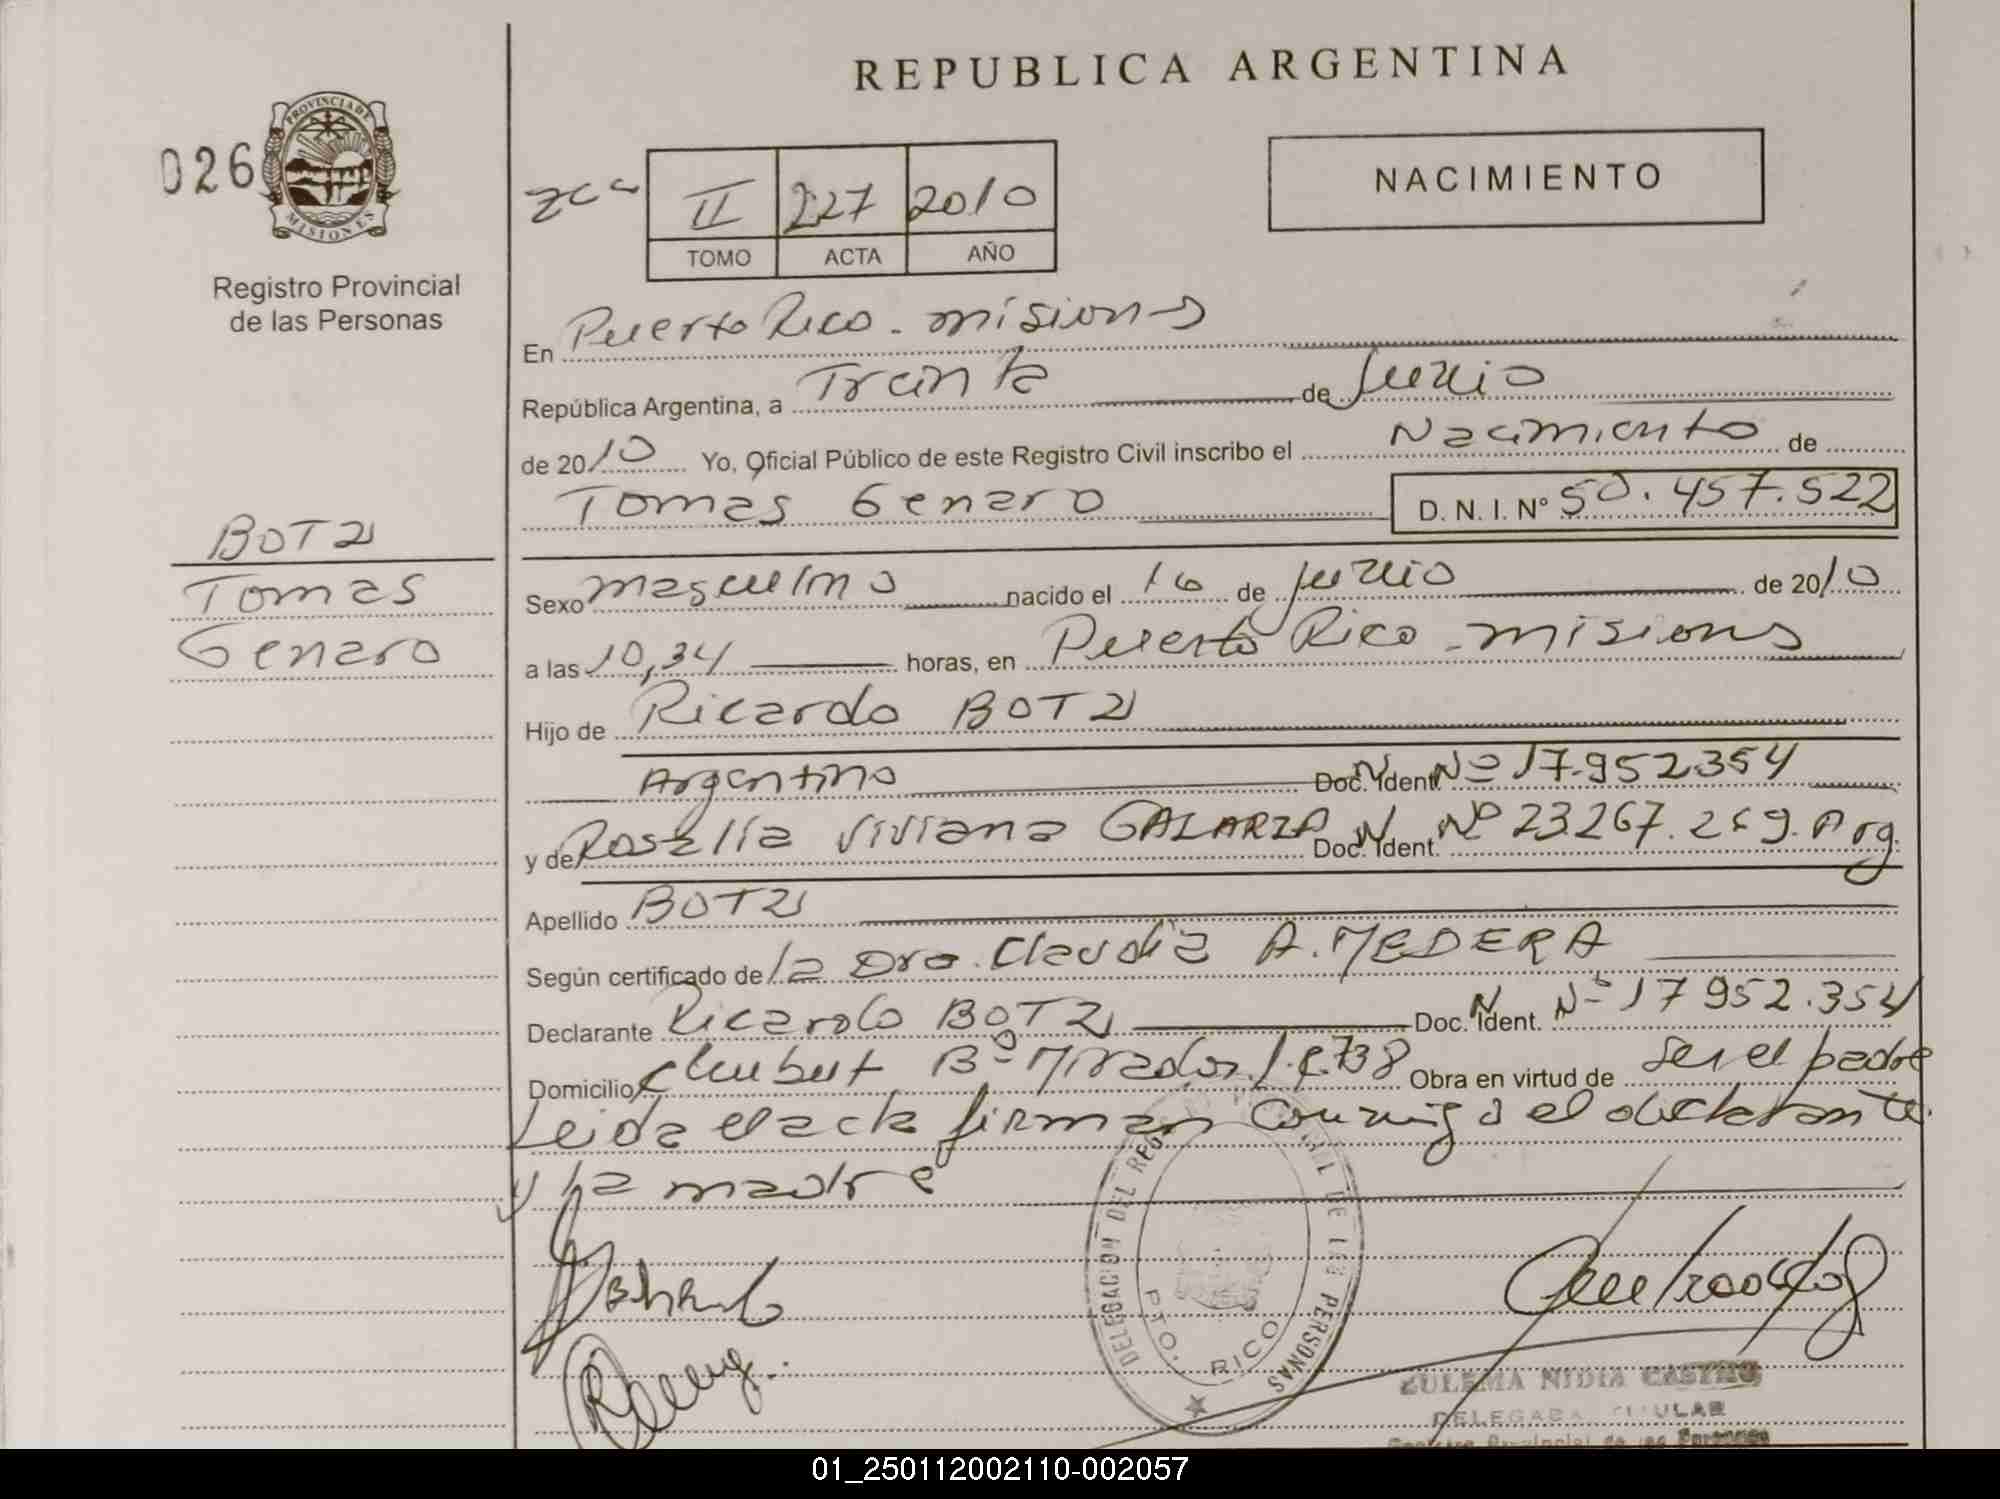 REPUBLICA ARGENTINA
026
PROVINCIA DE
MISIONES
Registro Provincial
de las Personas
II 227 2010
TOMO ACTA AÑO
NACIMIENTO
En Puerto Rico - misiones
República Argentina, a Treinta de Junio
de 2010 Yo, Oficial Público de este Registro Civil inscribo el Nacimiento de
Tomas Genaro D. N. I. N° 50.457.522
BOTZ
Tomas
Genaro
Sexo masculino nacido el 16 de junio de 2010
a las 10,34 horas, en Puerto Rico - misiones
Hijo de Ricardo BOTZ
Argentino Doc. Ident. Nº 17.952.354
y de Rosalia Viviana GALARZA Doc. Ident. Nº 23.267.269. Arg.
Apellido BOTZ
Según certificado de la Dra. Claudia A. MEDERA
Declarante Ricardo BOTZ Doc. Ident. Nº 17 952.354
Domicilio Chubut Bº Mirador Obra en virtud de ser el padre
Leida el acta firman conmigo el declarante
y la madre
DELEGACION DEL REG CIVIL DE LAS PERSONAS
PTO. RICO
ZULEMA NIDIA CASTRO
DELEGADA TITULAR
Registro Provincial de las Personas
01_250112002110-002057